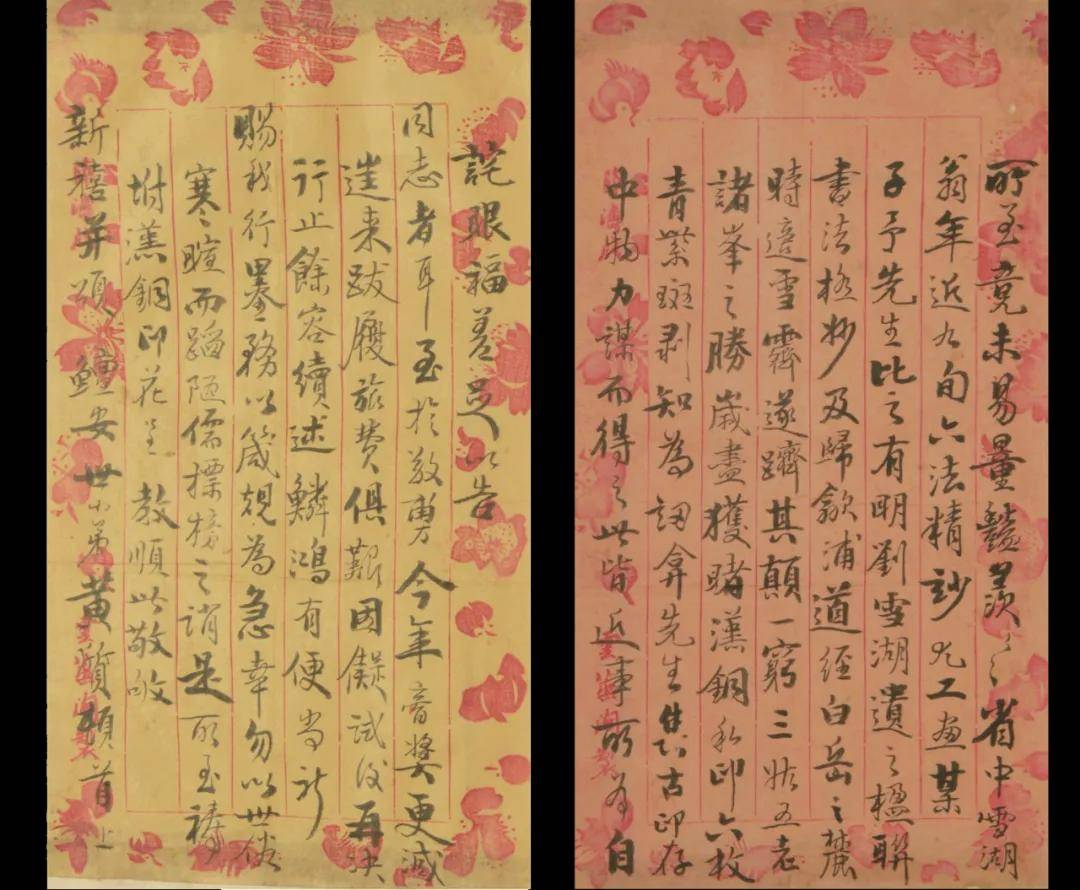 所至竟未易量豔羨〻省中雪湖
翁年近九旬六法精妙尤工畫某
子予先生比之有明劉雪湖遺之楹聯
書法極妙及歸歙浦道經白岳之麓
時適雪霽遂躋其顛一窮三姑五老
諸峯之勝嵗盡獲睹漢銅私印六枚
青紫斑剥知為訒弇先生集古印存
中物力謀而得之此皆近事所為自
詫眼福差足以告
同志者耳至於敬旉今年膏奬更減
邇來跋履旅費俱艱因儗試後再決
行止餘容續述鱗鴻有便尚祈
賜我行墨務以箴規為急幸勿以世俗
寒暄而蹈陋儒摽榜之誚是所至禱
坿漢銅印花呈教順此敬敂
新禧并頌鱣安世小弟黃質頓首上